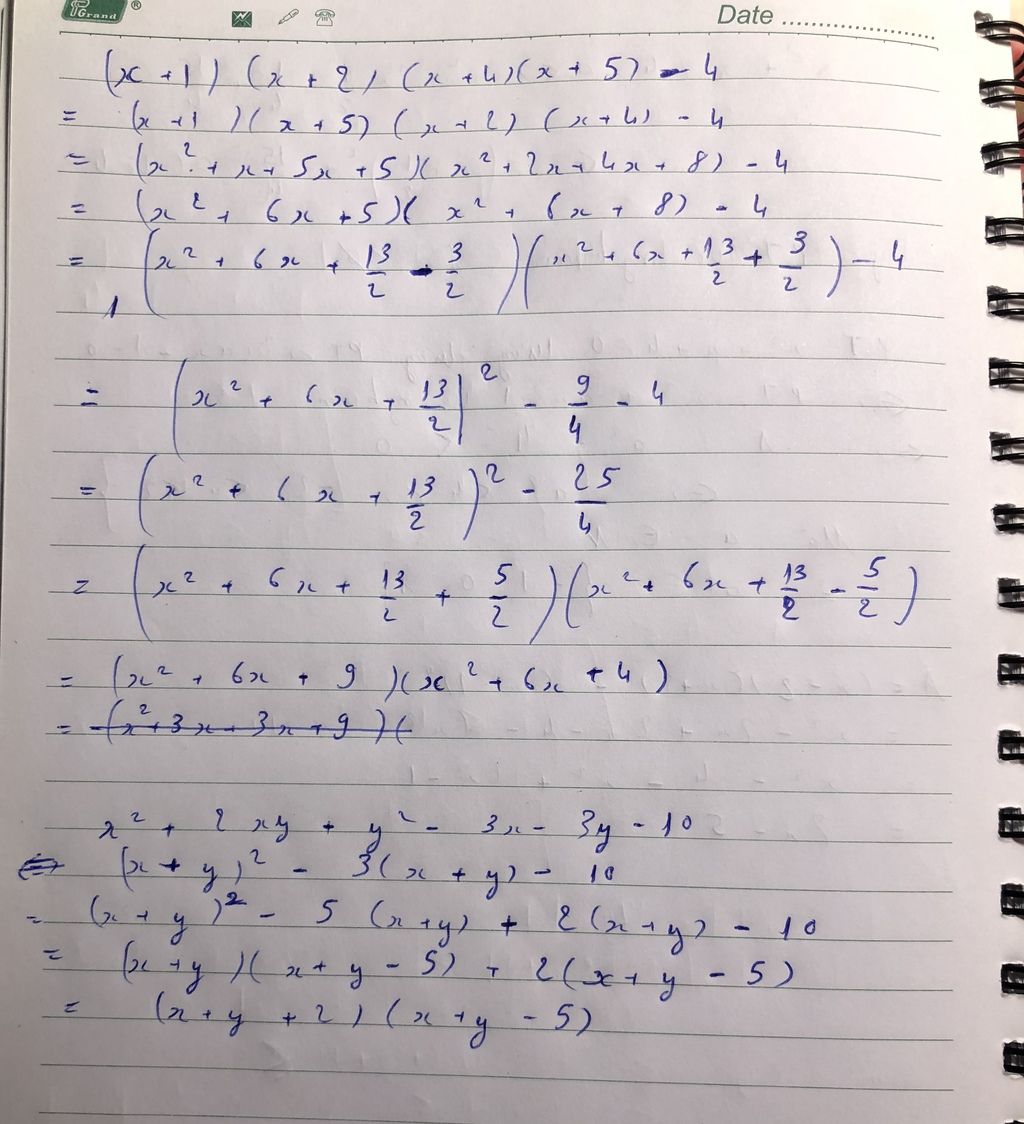 Grand ® Date ....................
(x + 1) (x + 2) (x + 4)(x + 5) - 4
= (x + 1)(x + 5) (x + 2) (x + 4) - 4
= (x² + x + 5x + 5)(x² + 2x + 4x + 8) - 4
= (x² + 6x + 5)(x² + 6x + 8) - 4
= (x² + 6x + 13/2 - 3/2)(x² + 6x + 13/2 + 3/2) - 4
= (x² + 6x + 13/2)² - 9/4 - 4
= (x² + 6x + 13/2)² - 25/4
= (x² + 6x + 13/2 + 5/2)(x² + 6x + 13/2 - 5/2)
= (x² + 6x + 9)(x² + 6x + 4)
= (x² + 3x + 3x + 9)(
x² + 2xy + y² - 3x - 3y - 10
(x + y)² - 3(x + y) - 10
= (x + y)² - 5 (x + y) + 2(x + y) - 10
= (x + y)(x + y - 5) + 2(x + y - 5)
= (x + y + 2)(x + y - 5)